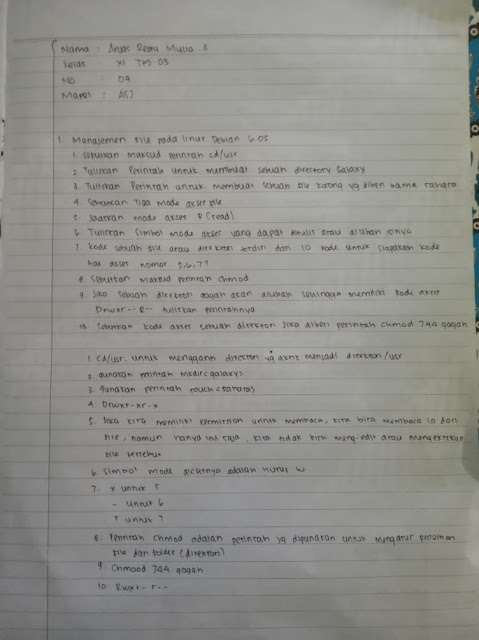 Nama : Andk Restu Mulia A
Kelas : XI TKJ 03
No : 04
Mapel : ASJ
1. Manajemen file pada linux Debian 6 OS
1. Sebutkan maksud perintah cd/usr.
2. Tuliskan Perintah untuk membuat sebuah directory Galaxy
3. Tuliskan Perintah untuk membuat sebuah file kosong yg diberi nama
4. Sebutkan Tiga mode akses file
5. Jelaskan mode akses R (read)
6. Tuliskan Simbol mode akses yang dapat ditulis atau diubah isinya
7. Kode sebuah file atau direktori terdiri dari 10 kode, untuk siapakah kode
hak akses nomor 5,6,7?
8. Sebutkan maksud perintah chmod
9. Jika sebuah direktori gagah akan diubah sehingga memiliki kode akses
Drwxr--r-- tuliskan perintahnya
10. Sebutkan kode akses sebuah direktori jika diberi perintah chmod 744 gagah
1. cd/usr, untuk mengganti direktori yg aktif menjadi direktori /usr
2. gunakan perintah mkdir(galaxy)
3. gunakan perintah touch
4. Drwxr-xr-x
5. Jika kita memiliki permission untuk membaca, kita bisa membaca isi dari
file, namun hanya itu saja, kita tidak bisa meng-edit atau mengeksekusi
file tersebut
6. Simbol mode aksesnya adalah huruf w
7. x untuk 5
- untuk 6
r untuk 7
8. Perintah chmod adalah perintah yg digunakan untuk mengatur perizinan
file dan folder (direktori)
9. Chmood 744 gagah
10. Rwxr--r--